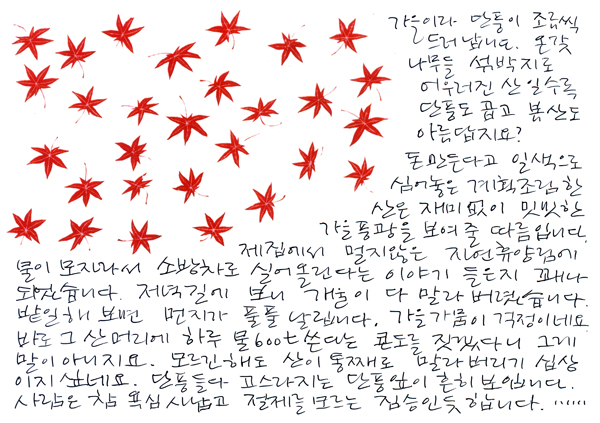 가을이라 단풍이 조금씩
드러납니다. 온갖
나무들 섞박지로
어우러진 산일수록
단풍도 곱고 봄산도
아름답지요?
돈만든다고 일색으로
심어놓은 계획조림한
산은 재미없이 밋밋한
가을풍광을 보여줄 따름입니다.
제집에서 멀지않은 자연휴양림에
물이 모자라서 소방차로 실어올린다는 이야기 들은지 꽤나
되었습니다. 저녁길에 보니 개울이 다 말라버렸습니다.
밭일해 보면 먼지가 풀풀 날립니다. 가을가뭄이 걱정이네요
바로 그 산머리에 하루 물600t 쓴다는 콘도를 짓겠다니 그게
말이 아니지요. 모르긴해도 산이 통째로 말라버리기 십상
이지 싶네요. 단풍들다 고스라지는 단풍잎이 흔히 보입니다.
사람은 참 욕심 사납고 절제를 모르는 짐승인듯 합니다. ······